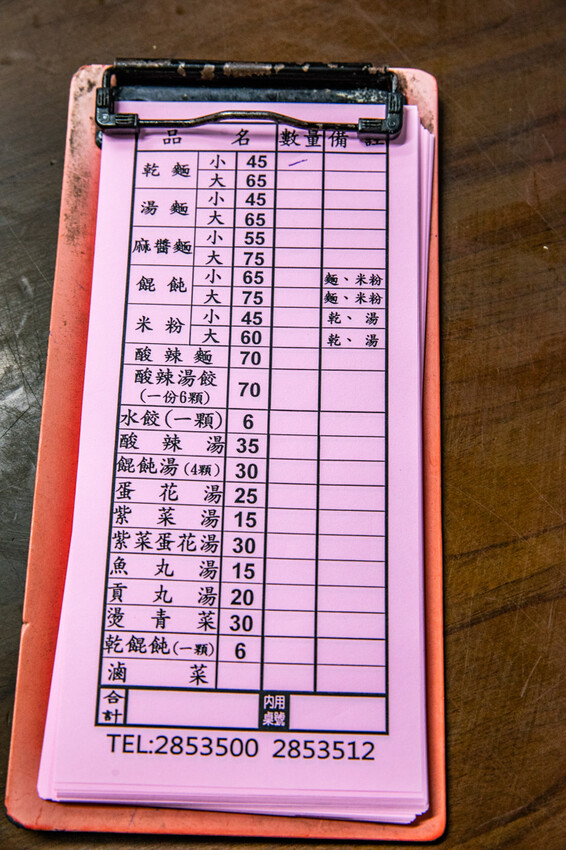 品名 數量 備註
乾麵 小 45
大 65
湯麵 小 45
大 65
麻醬麵 小 55
大 75
餛飩 小 65 麵、米粉
大 75 麵、米粉
米粉 小 45 乾、湯
大 60 乾、湯
酸辣麵 70
酸辣湯餃 70
(一份6顆)
水餃(一顆) 6
酸辣湯 35
餛飩湯(4顆) 30
蛋花湯 25
紫菜湯 15
紫菜蛋花湯 30
魚丸湯 15
貢丸湯 20
燙青菜 30
乾餛飩(一顆) 6
滷菜
合計 内用桌號
TEL:2853500 2853512